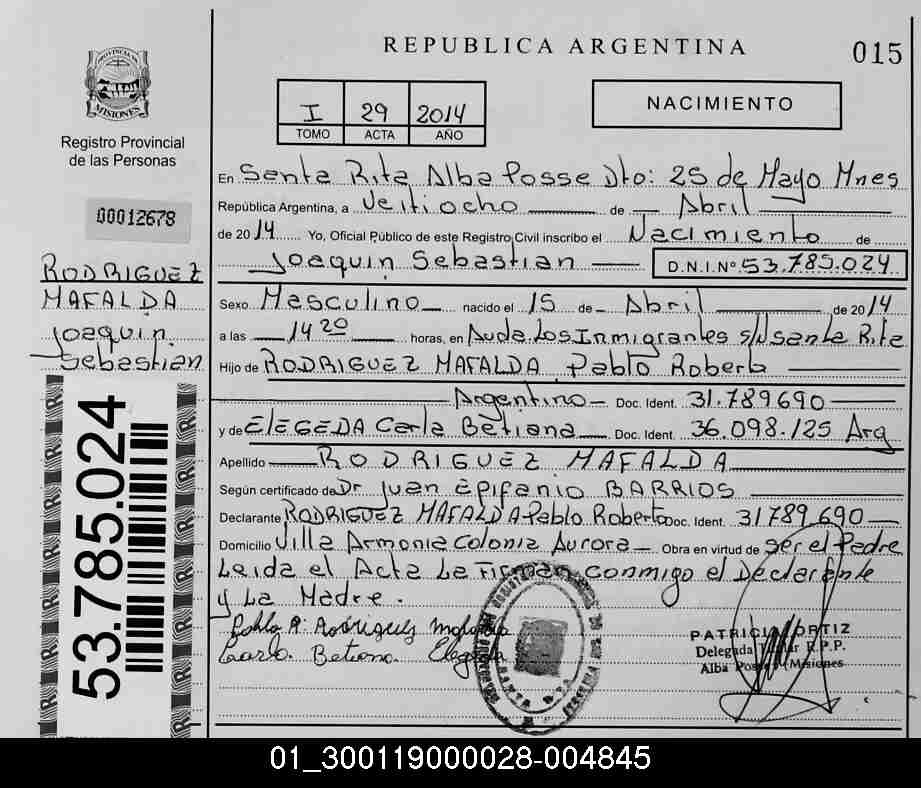 REPUBLICA ARGENTINA
015
PROVINCIA DE
MISIONES
Registro Provincial
de las Personas
00012678
I 29 2014
TOMO ACTA AÑO
NACIMIENTO
RODRIGUEZ
MAFALDA
Joaquin
Sebastian
53.785.024
En Santa Rita Alba Posse Dto: 25 de Mayo Mnes
República Argentina, a Veitiocho de Abril
de 2014 Yo, Oficial Público de este Registro Civil inscribo el Nacimiento de
Joaquin Sebastian D.N.I.Nº 53.785.024
Sexo Masculino nacido el 15 de Abril de 2014
a las 14 20 horas, en Avda. Los Inmigrantes s/N Santa Rita
Hijo de RODRIGUEZ MAFALDA Pablo Roberto
Argentino Doc. Ident. 31.789690
y de ELEGEDA Carla Betiana Doc. Ident. 36.098.125 Arg
Apellido RODRIGUEZ MAFALDA
Según certificado de Dr Juan Epifanio BARRIOS
Declarante RODRIGUEZ MAFALDA Pablo Roberto Doc. Ident. 31789.690
Domicilio Villa Armonia Colonia Aurora Obra en virtud de ser el Padre
Leida el Acta La Firman conmigo el Declarante
y La Madre.
Pablo R. Rodriguez Mafalda
Carla Betiana Elegeda
SANTA RITA
PATRICIA ORTIZ
Delegada Titular R.P.P.
Alba Posse - Misiones
01_300119000028-004845